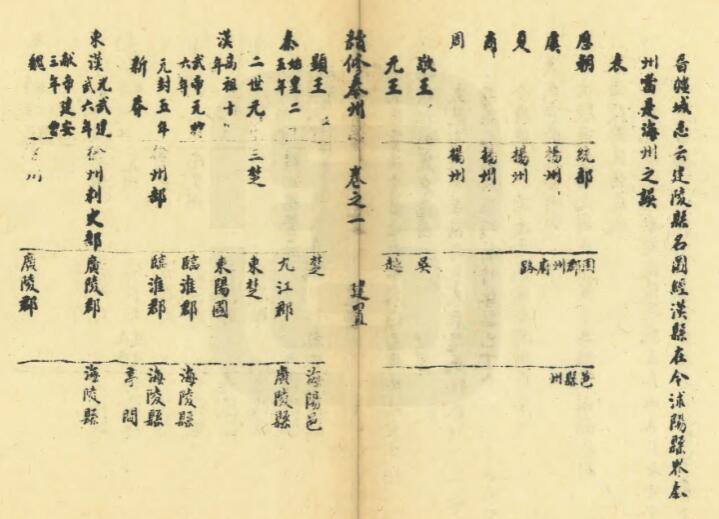 晉疆域志云建陵縣名圖經漢縣在今沭陽縣界泰
州當是海州之誤
表
歷朝 統部 国郡州府路 邑縣州
虞 揚州
夏 揚州
商 揚州
周 揚州
敬王 吳
元王 越
續修泰州 卷之一 建置
顯王 楚 海陽邑
秦始皇二五年 九江郡 廣陵縣
二世元 三楚 東楚
漢高祖十年 東陽國
武帝元狩六年 臨淮郡 海陵縣
元封五年 徐州部 臨淮郡 海陵縣
新莽 亭間
東漢光武建武六年 徐州刺史部 廣陵郡 海陵縣
獻帝建安三年
魏 州 廣陵郡